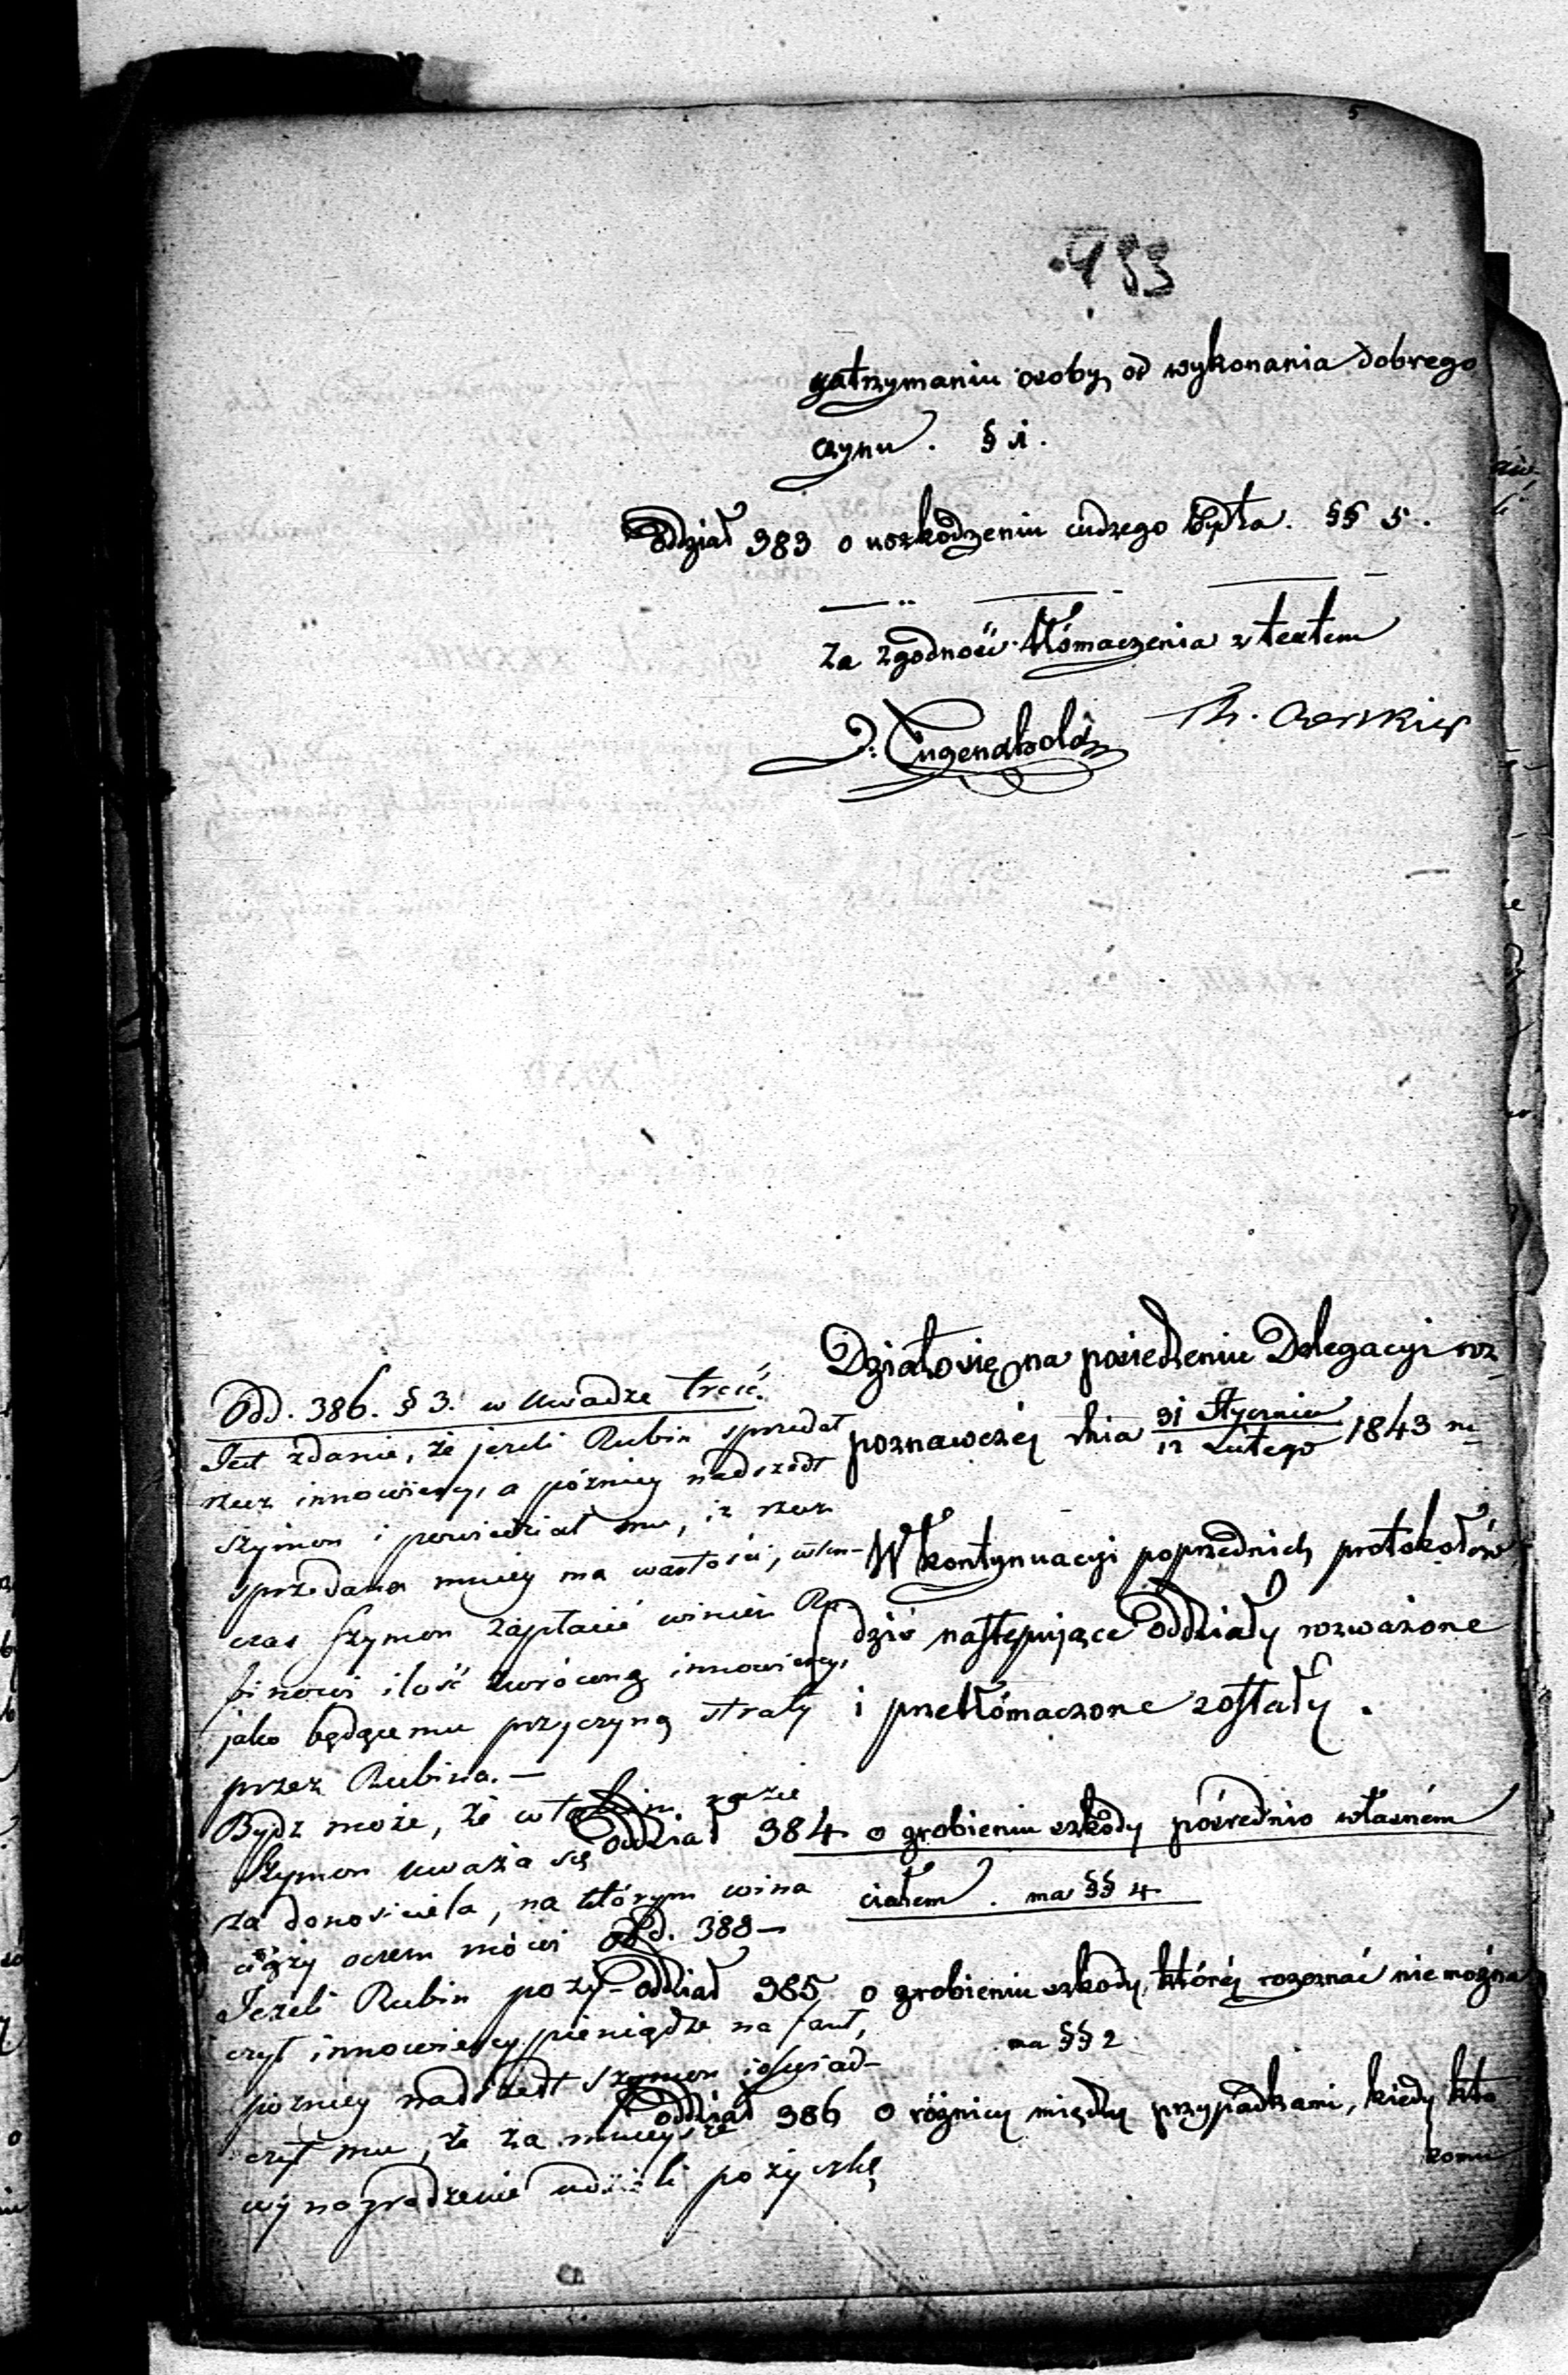 5
493
zatrzymaniu osoby od wykonania dobrego
czynu. § 1.
Oddział 383 o uszkodzeniu cudzego bydła. §§ 5.
Za zgodność tłómaczenia z textem
J. Tugendhold
Działo się na posiedzeniu Delegacyi roz-
poznawczéj dnia 31 Stycznia / 12 Lutego 1843 r.
W kontynuacyi poprzednich protokołów
dziś następujące Oddziały rozważone
i przetłómaczone zostały.
Oddział 384 o zrobieniu szkody pośrednio własném
ciałem. ma §§ 4
Oddział 385 o zrobieniu szkody, któréj rozeznać nie można
ma §§ 2
Oddział 386 o różnicy między przypadkami, kiedy kto
komu
Odd. 386. § 3. w Uwadze treść.
Jest zdanie, że jeżeli Rubin sprzedał
rzecz innowiercy, a późniey nadszedł
Szymon i powiedział mu, iż rzecz
sprzedana mniey ma wartości, wten-
czas Szymon zapłacić winien Ru-
binowi ilość zwróconą innowiercy,
jako będącemu przyczyną straty
przez Rubina. —
Bydz może, że w takim razie
Szymon uważa się
za donosiciela, na którym wina
ciąży oczem mówi Odd. 388 —
Jeżeli Rubin poży-
czył innowiercy pieniądze na fant,
pozniey nadszedł Szymon i oświad-
czył mu, że za mnieysze
wynagrodzenie udzieli pożyczkę